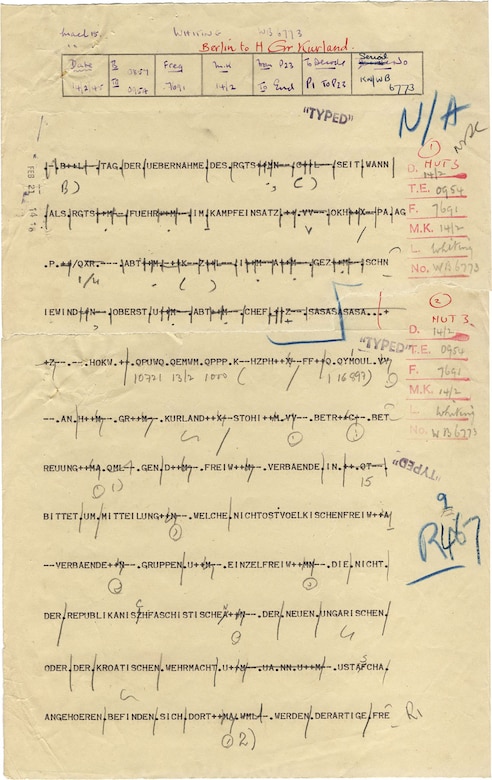 WHITING WB 6773
Berlin to H Gr Kurland.
Date B 0857 Freq M.K To Decode Serial No
14/2/45 0954 7691 14/2 To End P1 To P23 KN/WB 6773
"TYPED"
N/A
(1)
NUT 3
D. 14/2
T.E. 0954
F. 7691
M.K. 14/2
L. Whiting
No. WB 6773
FEB 21 14
-B++L TAG.DER.UEBERNAHME.DES.RGTS++MN--C++L--SEIT.WANN
B) , ( )
ALS.RGTS++M--FUEHR++M--IM.KAMPFEINSATZ.++.VV--OKH++X--PA.AG
P.++/QXR.--ABT++ML--++K--Z++L--I++M--A++M--GEZ++M--SCHN
1/4 ( )
IEWIND++N--OBERST.U++M--ABT++M--CHEF.++Z--..SASASASASA...+
(2)
NUT 3
D. 14/2
"TYPED"
T.E. 0954
F. 7691
M.K. 14/2
L. Whiting
No. WB 6773
+Z----.HOKW.++.QPUWQ.QEMWM.QPPP.K--HZPH++X--FF++Q.QYMOUL.VV
10721 13/2 1000 ( / 116897)
--.AN.H++M--.GR++M--.KURLAND++X--STOHI++M.VV--.BETR++C--.BET
REUUNG++MA.QML--.GEN.D++M--.FREIW++M--.VERBAENDE.IN.++.QT--
1) 15
"TYPED"
BITTET.UM.MITTEILUNG++N--.WELCHE.NICHTOSTVOELKISCHENFREIW++A
9
R467
--VERBAENDE++N--GRUPPEN.U++M--.EINZELFREIW++MN--.DIE.NICHT.
DER.REPUBLIKANISZHFASCHISTISCHEA++N--.DER.NEUEN.UNGARISCHEN.
ODER.DER.KROATISCHEN.WEHRMACHT.U++M--.UA.NN.U++M--.USTAFCHA.
ANGEHOEREN.BEFINDEN.SICH.DORT++MA.WML--.WERDEN.DERARTIGE.FRE R1
2)